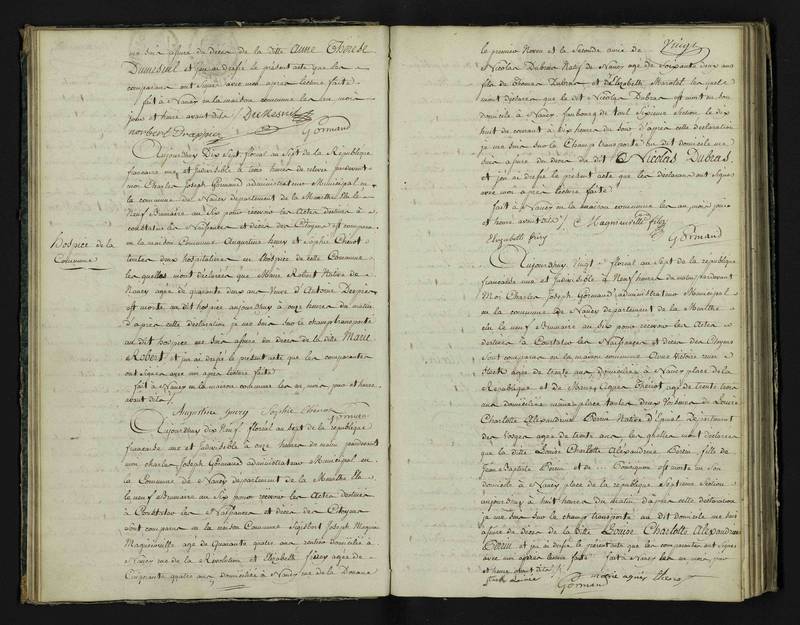 me suis assuré du décès de la ditte Anne Therese
Dumesnil et j'ai dressé le présent acte que les
comparans ont signé avec moi après lecture faite
fait à Nancy en la maison commune les an, mois
jour et heure avant dits / DuMesnil
norbert Drappier Gormand
Aujourdhuy Dix Sept floréal an Sept de la République
francaise une et indivisible à trois heures de relevée pardevant
moi Charles Joseph Gormand administrateur Municipal en
la commune de Nancy département de la Meurthe élu le
neuf Brumaire an Six pour recevoir les Actes destinés à
constater les Naissances et décès des Citoyens est comparu
en la maison Commune Augustine henry et Sophie Thenot
toutes deux hospitalieres en l'hospice de cette Commune
Hospice de la
Commune
les quelles m'ont déclarées que Marie Robert Native de
Nancy agée de quarante deux ans Veuve d'Antoine
est morte au dit hospice aujourdhuy à onze heures du matin
d'après cette déclaration je me suis sur le champ transporté
au dit hospice me suis assuré du décès de la ditte Marie
Robert et j'en ai dressé le présent acte que les comparantes
ont signés avec moi après lecture faite
fait à Nancy en la maison commune les an, mois jour et heure
avant dits /
Augustine henry Sophie Thenot
Gormand
Aujourdhuy dix Neuf floréal an sept de la république
francaise une et indivisible à onze heures du matin pardevant
moi charles Joseph Gormand administrateur Municipal en
la Commune de Nancy département de la Meurthe Elu
le neuf Brumaire an Six pour recevoir les Actes destinés
à Constater les Naissances et décès des Citoyens
sont comparu en la maison Commune Sigisbert Joseph
Magnienville agé de Quarante quatre ans rentier domicilié à
Nancy rue de la Révolution et Elizabeth fiery agée de
Cinquante quatre ans domiciliée à Nancy rue de la Douane
le premier Neveu et la Seconde amie de
Nicolas Dubras Natif de Nancy agé de Soixante deux ans
fils de Thomas Dubras et d'Elizabeth les quels
m'ont déclarés que le dit Nicolas Dubras est mort en son
domicile à Nancy faubourg de toul Sixieme Section le dix
huit du courant à dix heures du soir d'après cette déclaration
je me suis sur le Champ transporté au dit domicile me
suis assuré du décès du dit Nicolas Dubras,
et j'en ai dressé le présent acte que les déclarans ont signés
avec moi après lecture faite
fait à Nancy en la maison commune les an, mois jour
et heure avant dits / Magnienville
Elizabeth fiery Gormand
Aujourdhuy Vingt floréal an Sept de la république
francaise une et Indivisible à Neuf heures du matin pardevant
Moi Charles Joseph Gormand administrateur Municipal
en la commune de Nancy département de la Meurthe
élu le neuf Brumaire an six pour recevoir les Actes
destinés à Constater les Naissances et décès des Citoyens
Sont comparu en la maison commune Anne Victoire
Stock agée de trente ans Domiciliée à Nancy place de la
République et de Marie Agnes Theriot agée de trente trois
ans domiciliée même place toutes deux Voisines de Louise
Charlotte Alexandrine Perin Native d'Epinal Département
des Vosges agée de trente ans les quelles m'ont déclarées
que la ditte Louise Charlotte Alexandrine Perin, fille de
Jean Baptiste Perin et de ... Bourguon est morte en son
domicile à Nancy place de la république Septieme Section
aujourdhuy à huit heures du Matin d'après cette déclaration
je me suis sur le champ transporté au dit domicile me suis
assuré du décès de la ditte Louise Charlotte Alexandrine
Perin et j'ai dressé le présent acte que les comparantes ont signés
avec moi après lecture faite fait à Nancy les an mois, jour
et heure avant dits /. marie agnès
Gormand